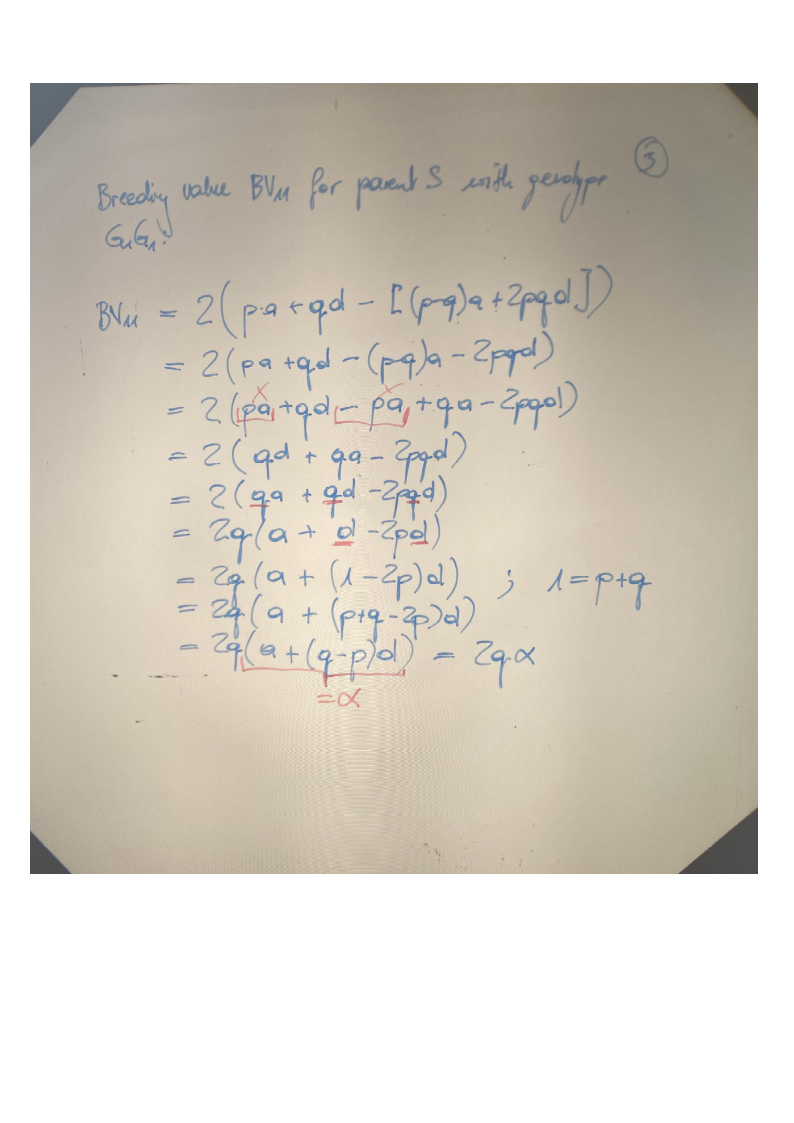 ③
Breeding value BV₁₁ for parent S with genotype
G₁G₁:
BV₁₁ = 2(pa + qd - [(p-q)a + 2pqd])
= 2(pa + qd - (p-q)a - 2pqd)
= 2(pa + qd - pa + qa - 2pqd)
= 2(qd + qa - 2pqd)
= 2(qa + qd - 2pqd)
= 2q(a + d - 2pd)
= 2q(a + (1 - 2p)d) ; 1 = p+q
= 2q(a + (p+q-2p)d)
= 2q(a + (q-p)d) = 2qα
= α